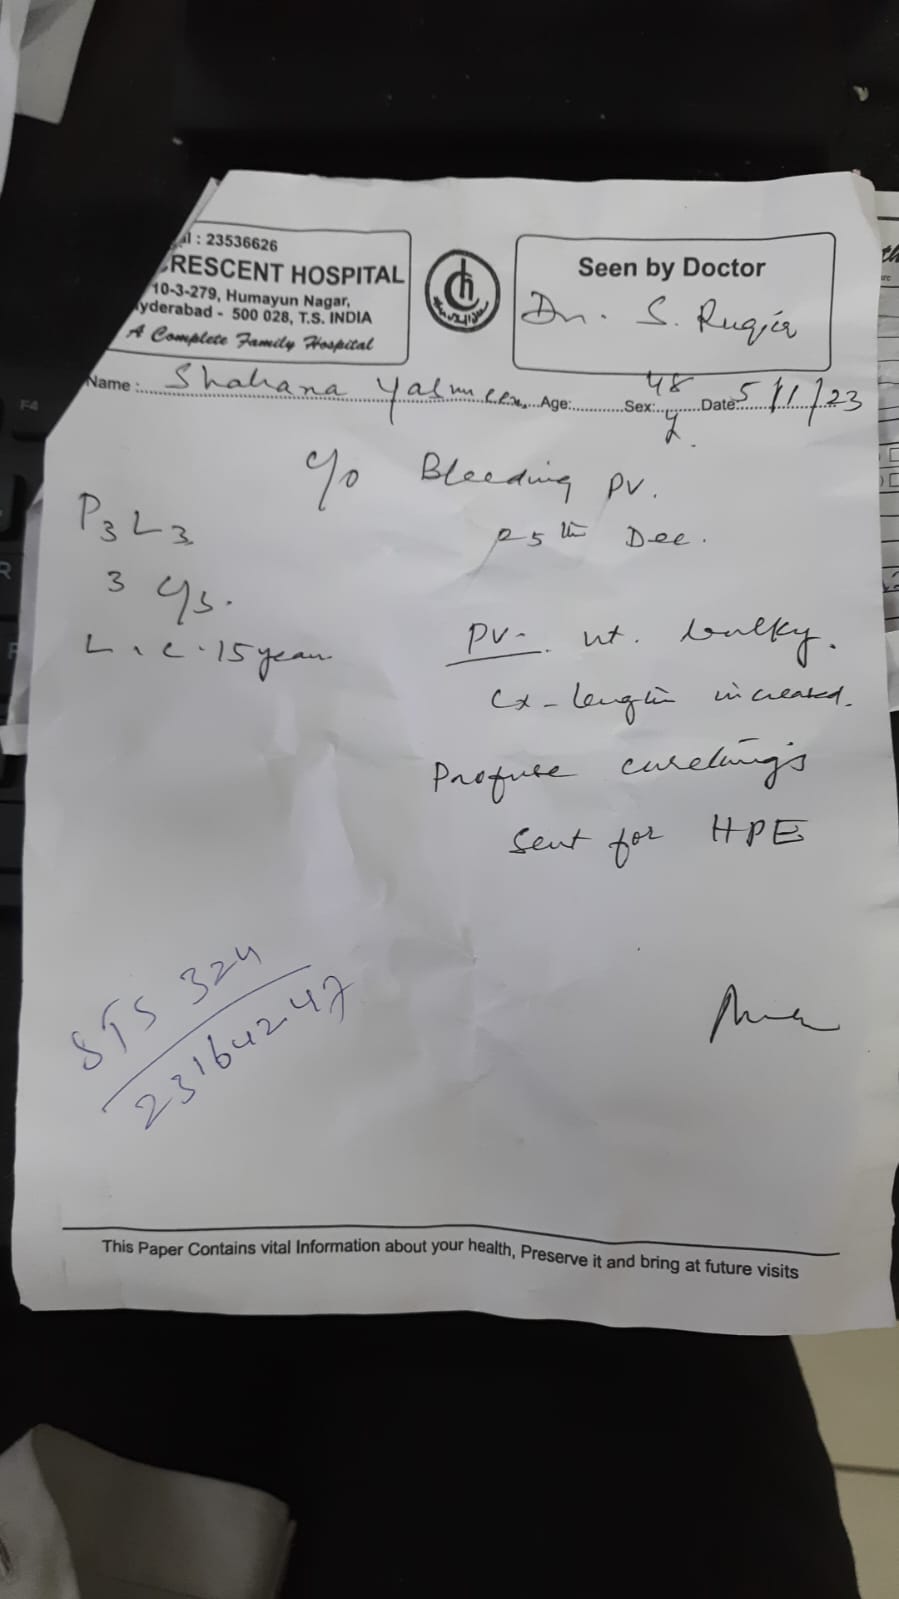 al : 23536626
RESCENT HOSPITAL
10-3-279, Humayun Nagar,
yderabad - 500 028, T.S. INDIA
A Complete Family Hospital
Seen by Doctor
Dr. S. Ruqia
Name : Shahana Yasmeen Age: Sex: 48 y. Date: 5/1/23
c/o Bleeding PV.
25th Dec.
P3L3
3 c/s.
L.C. 15 years
PV- ut. bulky.
Cx - length increased.
Profuse curettings
Sent for HPE
STS 324
23164247
This Paper Contains vital Information about your health, Preserve it and bring at future visits
F4
R